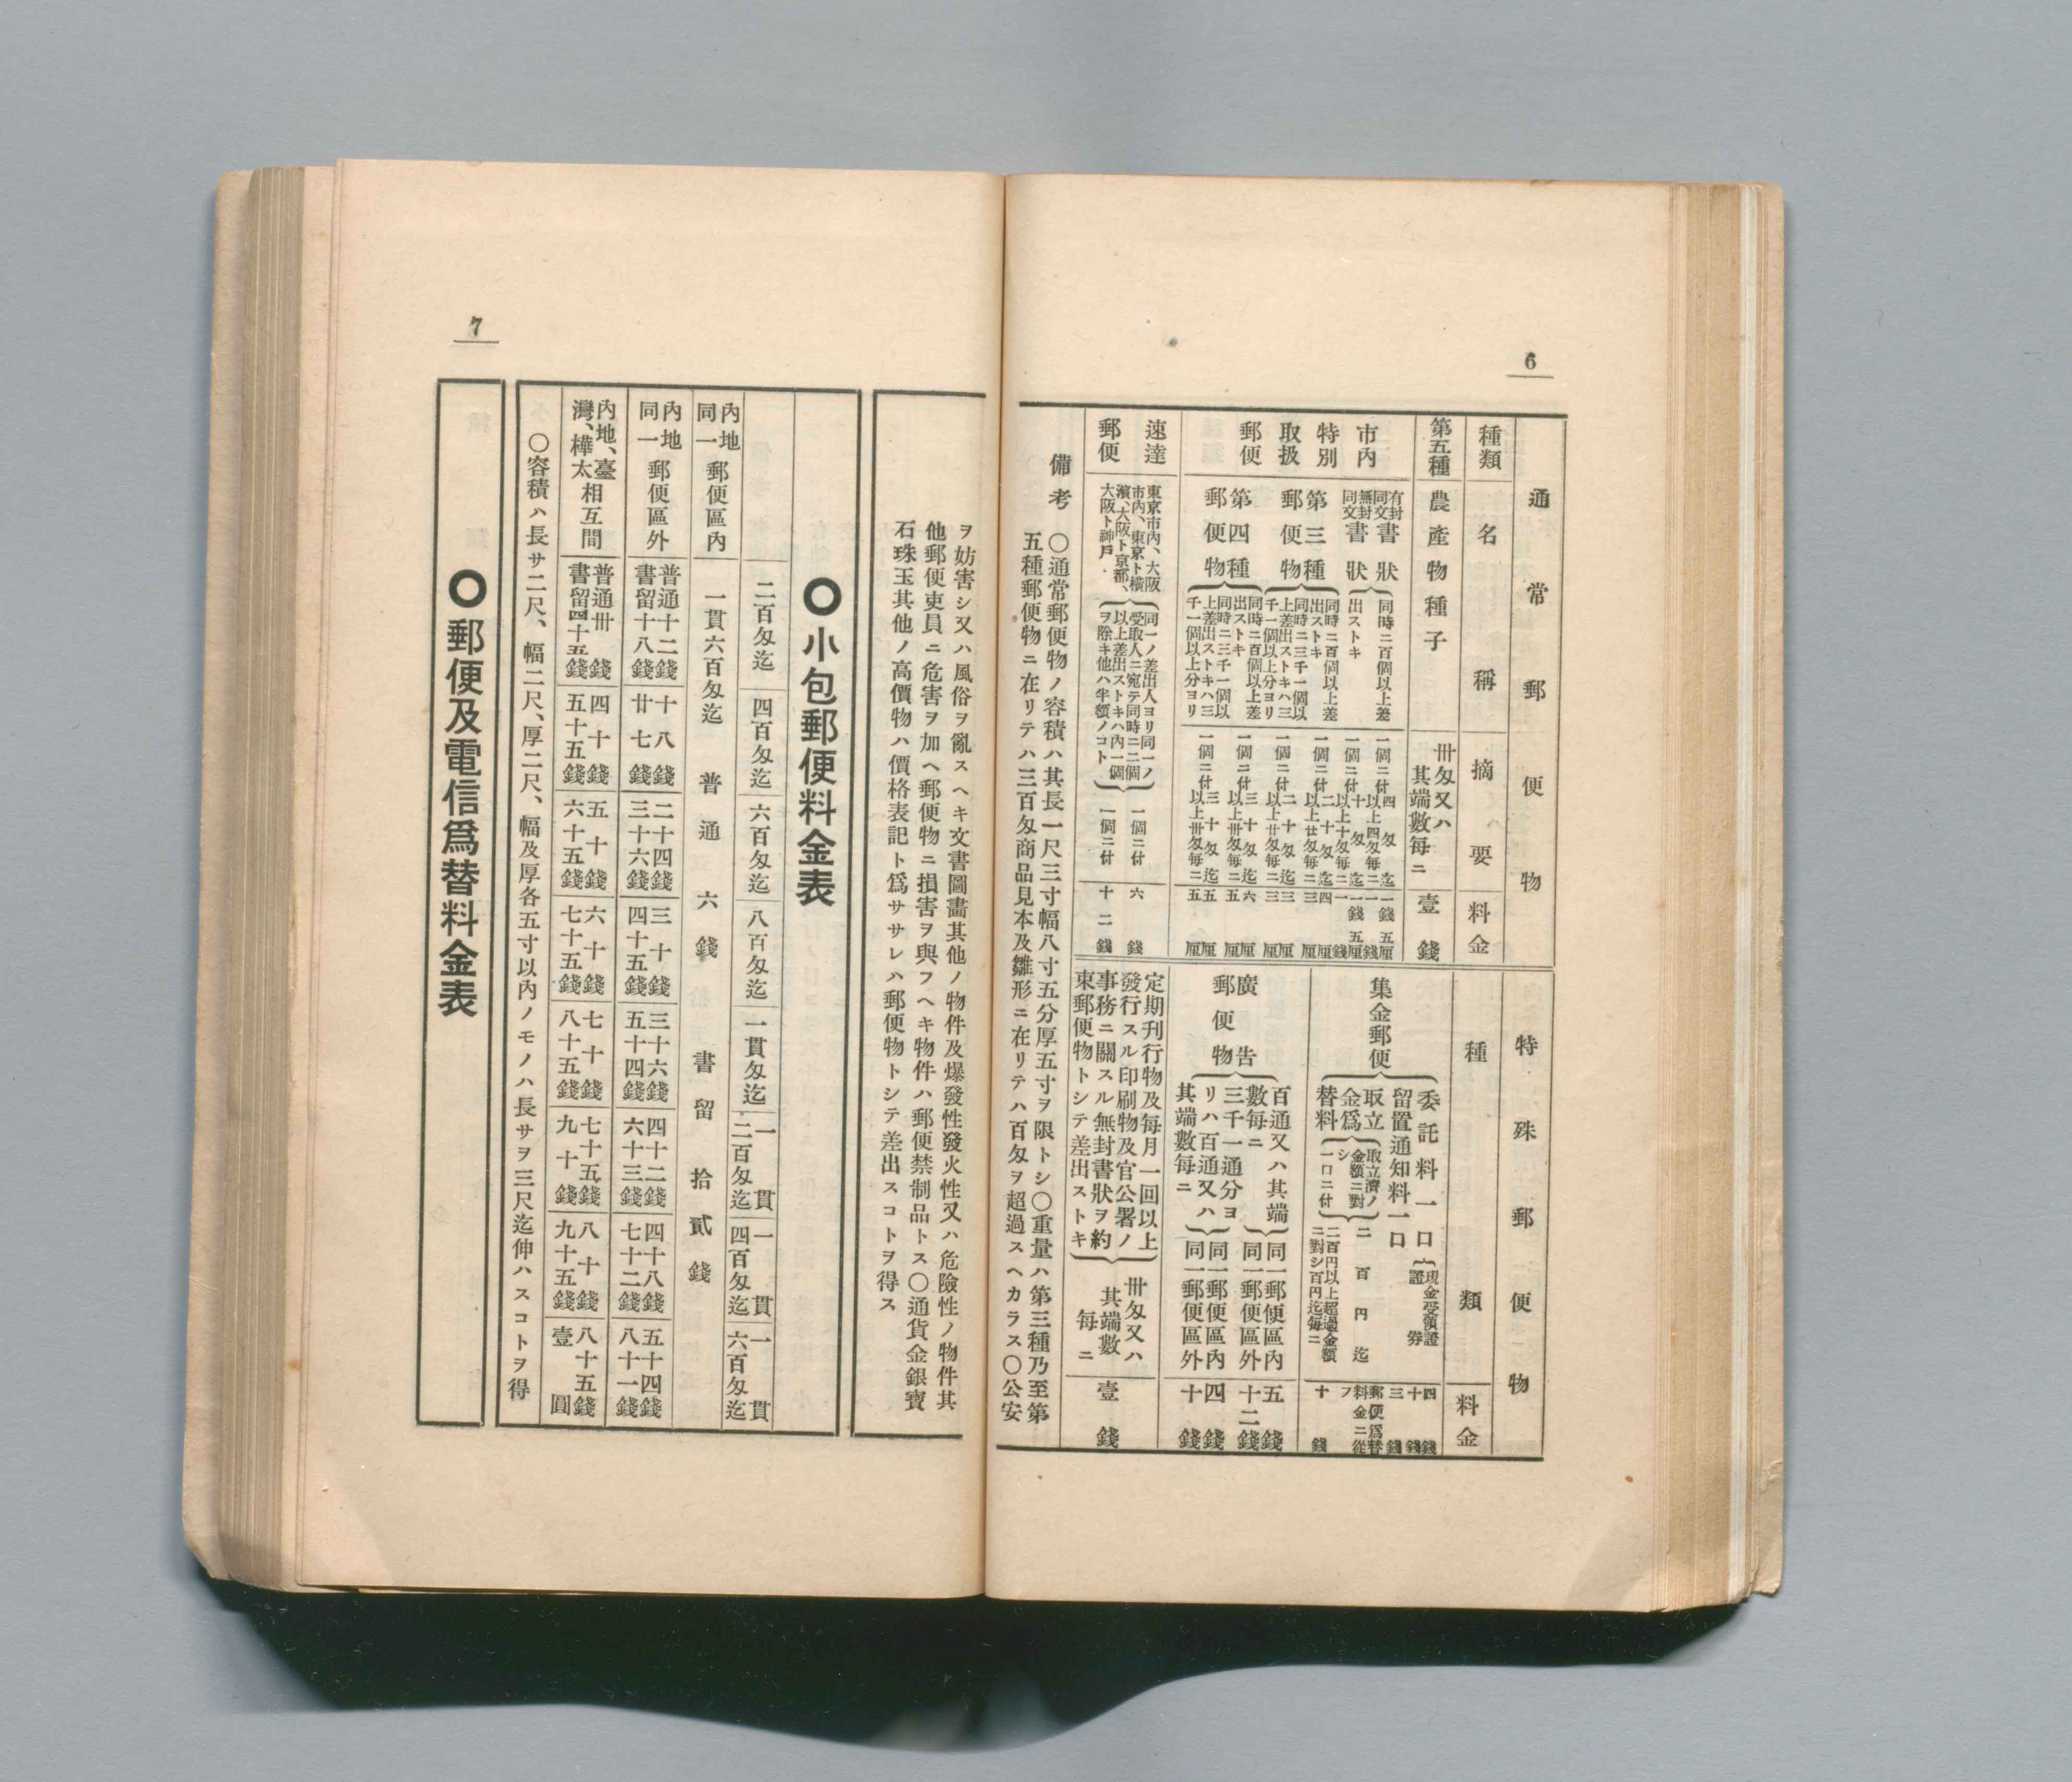 6
通常郵便物
種類
名稱
摘要
料金
第五種
農產物種子
卅匁又ハ
其端數每ニ
壹錢
市內
特別
取扱
郵便
有封
同文書狀
無封
同文書狀
同時ニ百個以上差
出ストキ
第三種
郵便物
同時ニ百個以上差
出ストキ
同時ニ三千一個以
上差出ストキハ三
千一個以上分ヨリ
第四種
郵便物
同時ニ百個以上差
出ストキ
同時ニ三千一個以
上差出ストキハ三
千一個以上分ヨリ
一個ニ付四匁迄
以上四匁每ニ
一錢五厘
一錢
一個ニ付十匁迄
以上十匁每ニ
一錢五厘
一錢
一個ニ付二十匁迄
以上廿匁每ニ
四厘
三厘
一個ニ付二十匁迄
以上廿匁每ニ
三厘
三厘
一個ニ付三十匁迄
以上卅匁每ニ
六厘
五厘
一個ニ付三十匁迄
以上卅匁每ニ
五厘
五厘
速達
郵便
東京市內、大阪
市內、東京ト橫
濱、大阪ト京都、
大阪ト神戶.
同一ノ差出人ヨリ同一ノ
受取人ニ宛テ同時ニ二個
以上差出ストキハ內一個
ヲ除キ他ハ半額ノコト
一個ニ付
六錢
一個ニ付
十二錢
特殊郵便物
種類
料金
集金郵便
委託料一口
現金受領證
證券
十錢
四錢
留置通知料一口
三錢
取立
金爲
替料
取立濟ノ
金額ニ對
シ
一口ニ付
二百円迄
郵便爲替
料金ニ從
フ
二百円以上超過金額
ニ對シ百円迄每ニ
十錢
廣告
郵便物
百通又ハ其端
數每ニ
同一郵便區內
五錢
同一郵便區外
十二錢
三千一通分ヨ
リハ百通又ハ
其端數每ニ
同一郵便區內
四錢
同一郵便區外
十錢
定期刊行物及每月一回以上
發行スル印刷物及官公署ノ
事務ニ關スル無封書狀ヲ約
束郵便物トシテ差出ストキ
卅匁又ハ
其端數
每ニ
壹錢
備考
〇通常郵便物ノ容積ハ其長一尺三寸幅八寸五分厚五寸ヲ限トシ〇重量ハ第三種乃至第
五種郵便物ニ在リテハ三百匁商品見本及雛形ニ在リテハ百匁ヲ超過スヘカラス〇公安
7
ヲ妨害シ又ハ風俗ヲ亂スヘキ文書圖畵其他ノ物件及爆發性發火性又ハ危險性ノ物件其
他郵便吏員ニ危害ヲ加ヘ郵便物ニ損害ヲ與フヘキ物件ハ郵便禁制品トス〇通貨金銀寶
石珠玉其他ノ高價物ハ價格表記ト爲ササレハ郵便物トシテ差出スコトヲ得ス
〇小包郵便料金表
二百匁迄
四百匁迄
六百匁迄
八百匁迄
一貫匁迄
一貫二百匁迄
一貫四百匁迄
一貫六百匁迄
內地
同一郵便區內
一貫六百匁迄 普通 六錢 書留 拾貳錢
內地
同一郵便區外
普通十二錢
書留十八錢
十八錢
廿七錢
二十四錢
三十六錢
三十錢
四十五錢
三十六錢
五十四錢
四十二錢
六十三錢
四十八錢
七十二錢
五十四錢
八十一錢
內地、臺
灣、樺太相互間
普通卅錢
書留四十五錢
四十錢
五十五錢
五十錢
六十五錢
六十錢
七十五錢
七十錢
八十五錢
七十五錢
九十錢
八十錢
九十五錢
八十五錢
壹圓
〇容積ハ長サ二尺、幅二尺、厚二尺、幅及厚各五寸以內ノモノハ長サヲ三尺迄伸ハスコトヲ得
〇郵便及電信爲替料金表